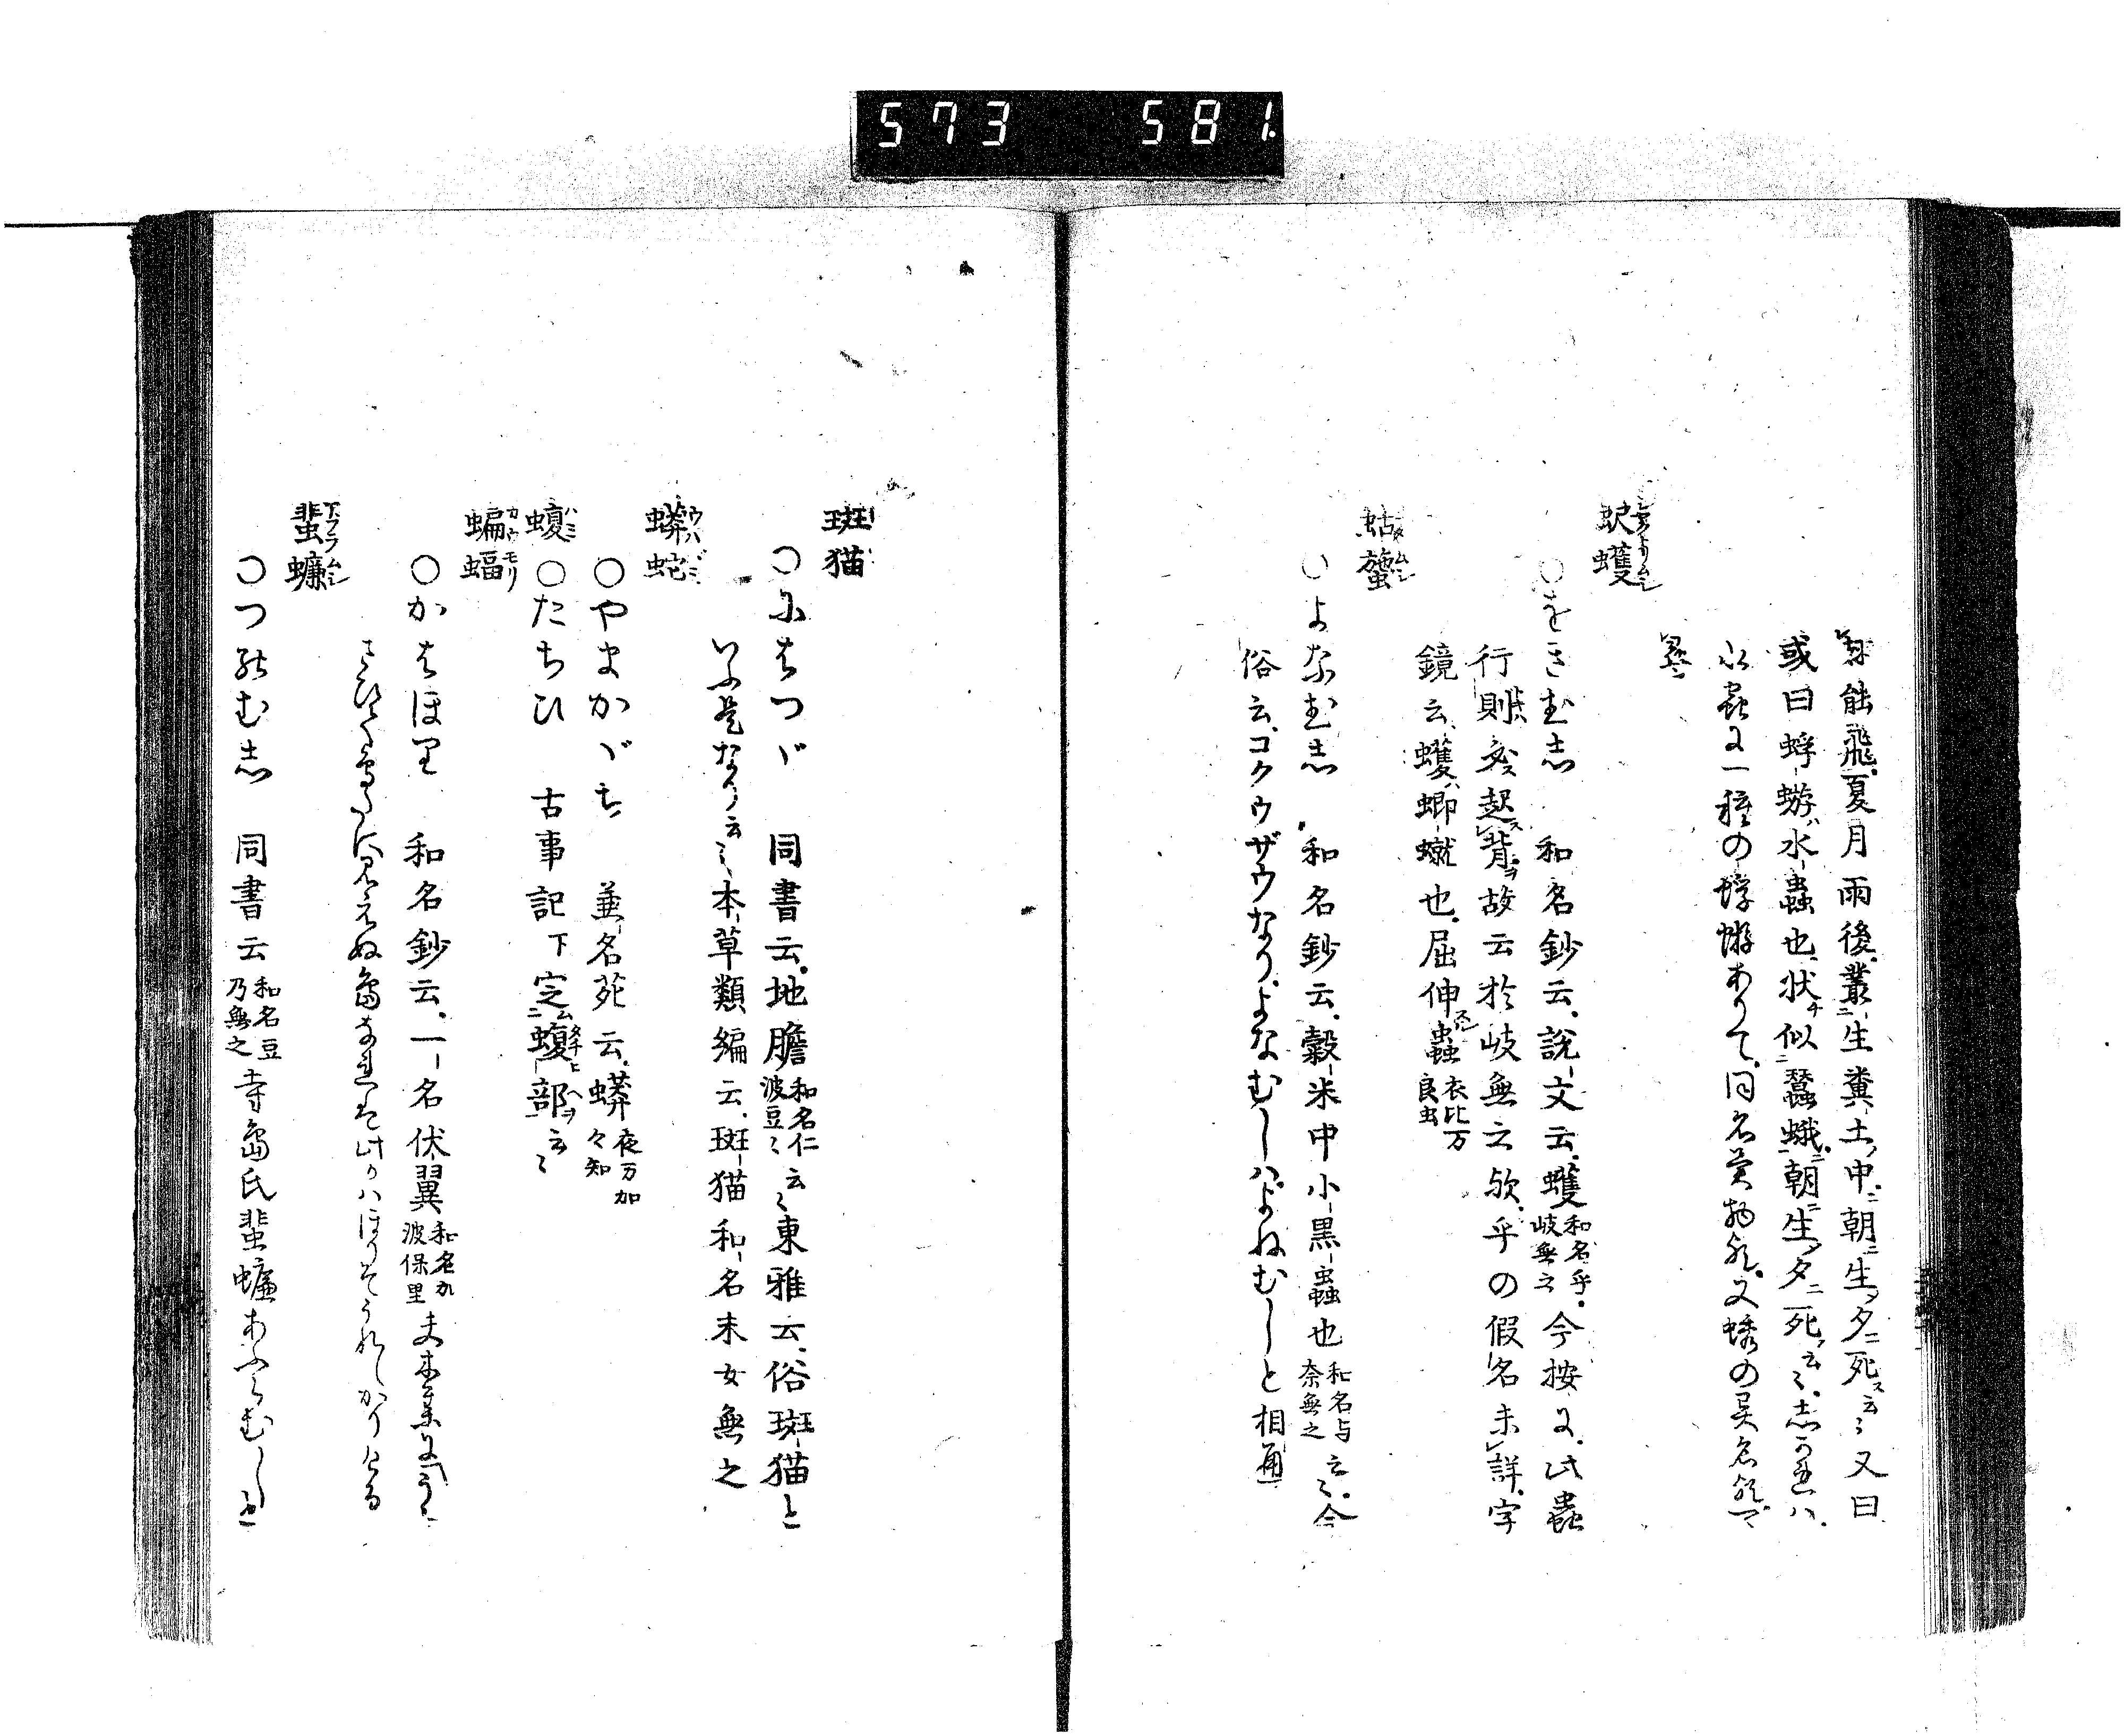 573 581
能飛夏月雨後叢生糞土中朝生夕死云々又曰
或曰蜉蝣水蟲也状似蠶蛾朝生夕死云々志かれハ
水蟲に一種の蜉蝣ありて同名異物歟又蝣の異名歟
蚇蠖
○をきむし 和名鈔云説文云蠖和名乎岐無之今按に此蟲
行則交起背故云於岐無之歟乎の假名未詳字
鏡云蠖蝍蝛也屈伸蟲衣比万良虫
蛄䗐
○よなむし 和名鈔云穀米中小黒蟲也和名与奈無之云々今
俗云コクウザウなりよなむしハよねむしと相通
斑猫
○にはつゞ 同書云地膽和名仁波豆々云々東雅云俗斑猫と
いふ是なり云々本草類編云斑猫和名末女無之
蟒蛇 ウハバミ
○やまかゞち 兼名苑云蟒夜万加々知
蝮 ハミ
○たちひ 古事記下定蝮部云々
蝙蝠 カウモリ
○かはほり 和名鈔云一名伏翼和名加波保里夫木集に
蜚蠊 アフラムシ
○つのむし 同書云和名豆乃無之寺島氏蜚蠊あふらむしと